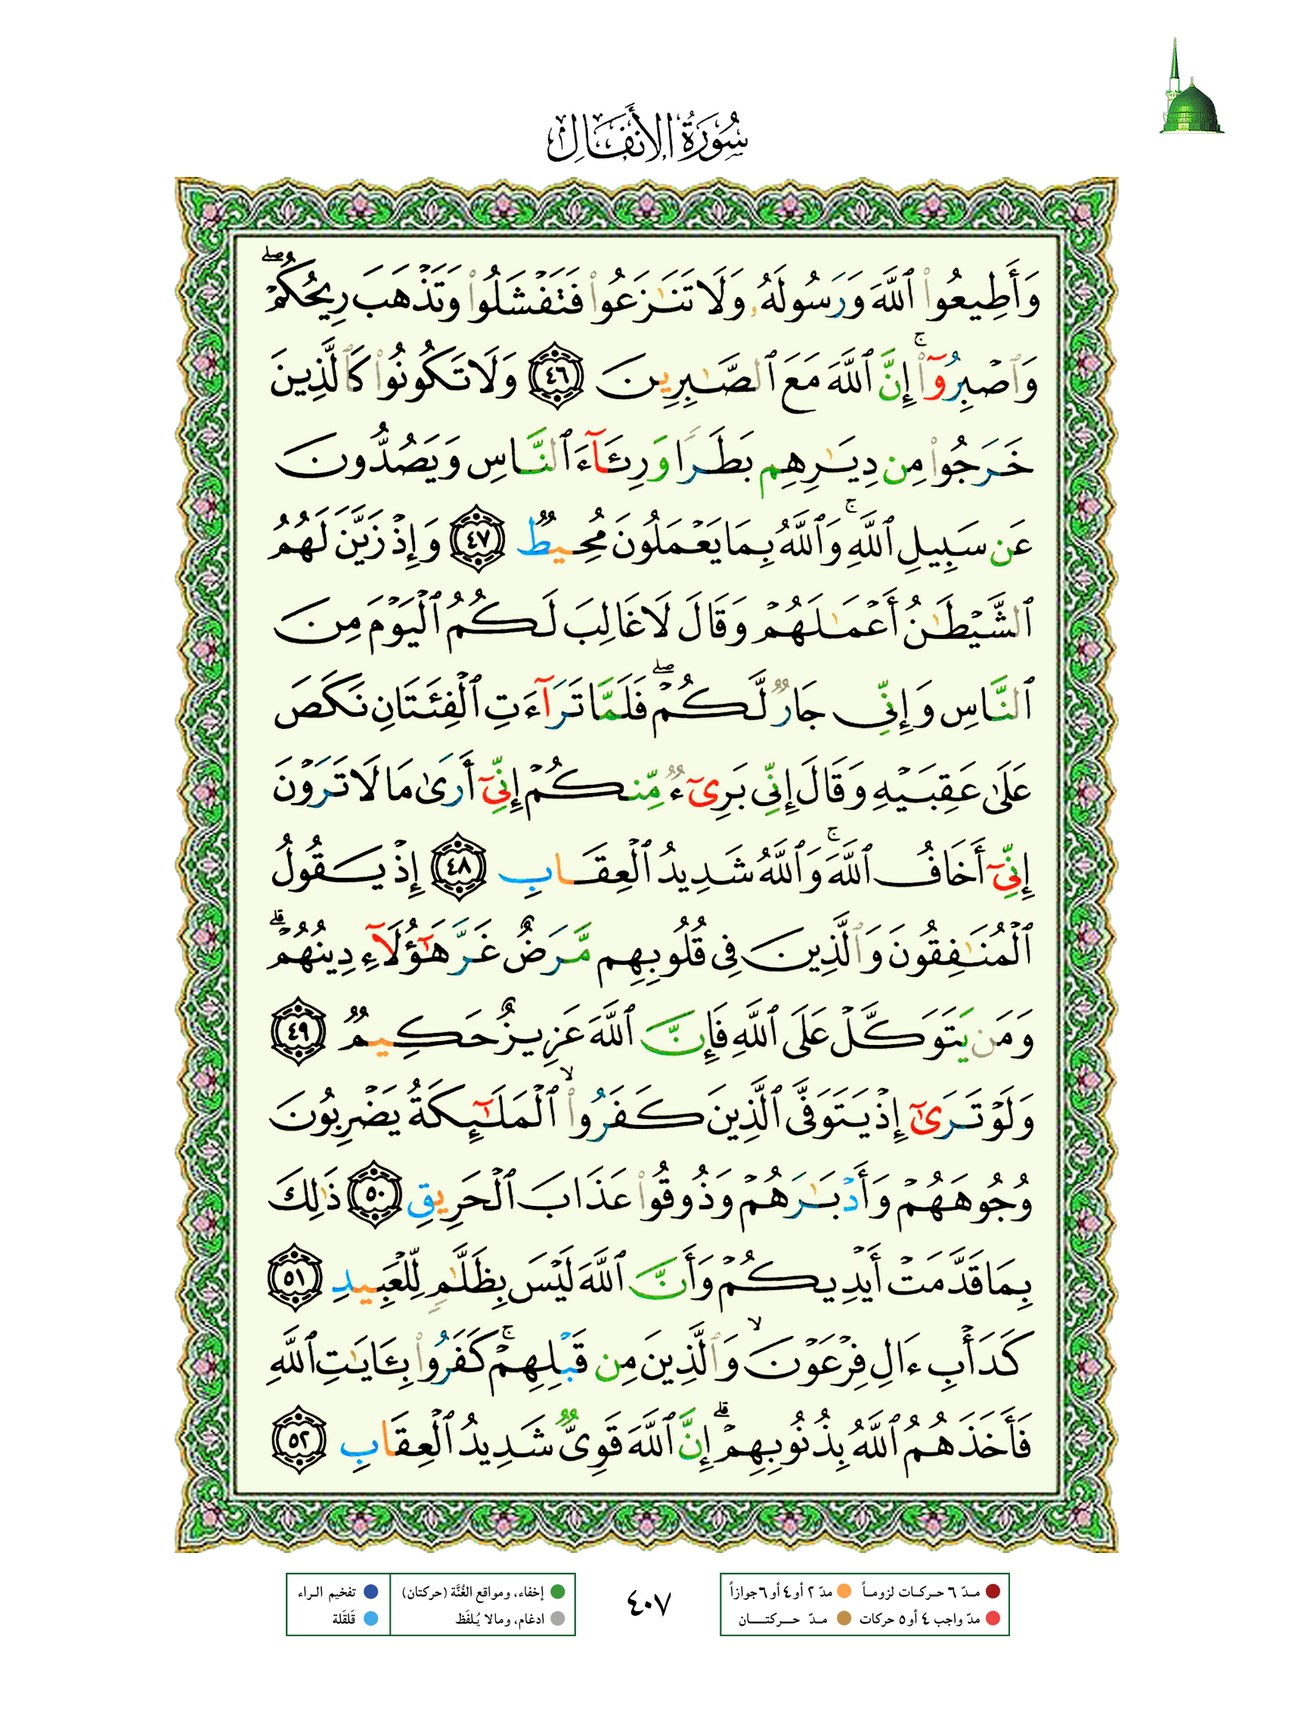 سُورَةُ الأَنفَالِ
وَأَطِيعُوا۟ ٱللَّهَ وَرَسُولَهُۥ وَلَا تَنَـٰزَعُوا۟ فَتَفْشَلُوا۟ وَتَذْهَبَ رِيحُكُمْ ۖ
وَٱصْبِرُوٓا۟ ۚ إِنَّ ٱللَّهَ مَعَ ٱلصَّـٰبِرِينَ ٤٦ وَلَا تَكُونُوا۟ كَٱلَّذِينَ
خَرَجُوا۟ مِن دِيَـٰرِهِم بَطَرًا وَرِئَآءَ ٱلنَّاسِ وَيَصُدُّونَ
عَن سَبِيلِ ٱللَّهِ ۚ وَٱللَّهُ بِمَا يَعْمَلُونَ مُحِيطٌ ٤٧ وَإِذْ زَيَّنَ لَهُمُ
ٱلشَّيْطَـٰنُ أَعْمَـٰلَهُمْ وَقَالَ لَا غَالِبَ لَكُمُ ٱلْيَوْمَ مِنَ
ٱلنَّاسِ وَإِنِّى جَارٌ لَّكُمْ ۖ فَلَمَّا تَرَآءَتِ ٱلْفِئَتَانِ نَكَصَ
عَلَىٰ عَقِبَيْهِ وَقَالَ إِنِّى بَرِىٓءٌ مِّنكُمْ إِنِّىٓ أَرَىٰ مَا لَا تَرَوْنَ
إِنِّىٓ أَخَافُ ٱللَّهَ ۚ وَٱللَّهُ شَدِيدُ ٱلْعِقَابِ ٤٨ إِذْ يَقُولُ
ٱلْمُنَـٰفِقُونَ وَٱلَّذِينَ فِى قُلُوبِهِم مَّرَضٌ غَرَّ هَـٰٓؤُلَآءِ دِينُهُمْ ۗ
وَمَن يَتَوَكَّلْ عَلَى ٱللَّهِ فَإِنَّ ٱللَّهَ عَزِيزٌ حَكِيمٌ ٤٩
وَلَوْ تَرَىٰٓ إِذْ يَتَوَفَّى ٱلَّذِينَ كَفَرُوا۟ ۙ ٱلْمَلَـٰٓئِكَةُ يَضْرِبُونَ
وُجُوهَهُمْ وَأَدْبَـٰرَهُمْ وَذُوقُوا۟ عَذَابَ ٱلْحَرِيقِ ٥٠ ذَٰلِكَ
بِمَا قَدَّمَتْ أَيْدِيكُمْ وَأَنَّ ٱللَّهَ لَيْسَ بِظَلَّـٰمٍ لِّلْعَبِيدِ ٥١
كَدَأْبِ ءَالِ فِرْعَوْنَ ۙ وَٱلَّذِينَ مِن قَبْلِهِمْ ۚ كَفَرُوا۟ بِـَٔايَـٰتِ ٱللَّهِ
فَأَخَذَهُمُ ٱللَّهُ بِذُنُوبِهِمْ ۗ إِنَّ ٱللَّهَ قَوِىٌّ شَدِيدُ ٱلْعِقَابِ ٥٢
مـدّ ٦ حـركـات لزومـاً مدّ ٢ أو ٤ أو ٦ جوازاً
مدّ واجب ٤ أو ٥ حركات مـدّ حــركتــــان
٤٠٧
إخفاء، ومواقع الغُنَّة (حركتان) تفخيم الـراء
ادغام، ومالا يُـلفَظ قلقَلة